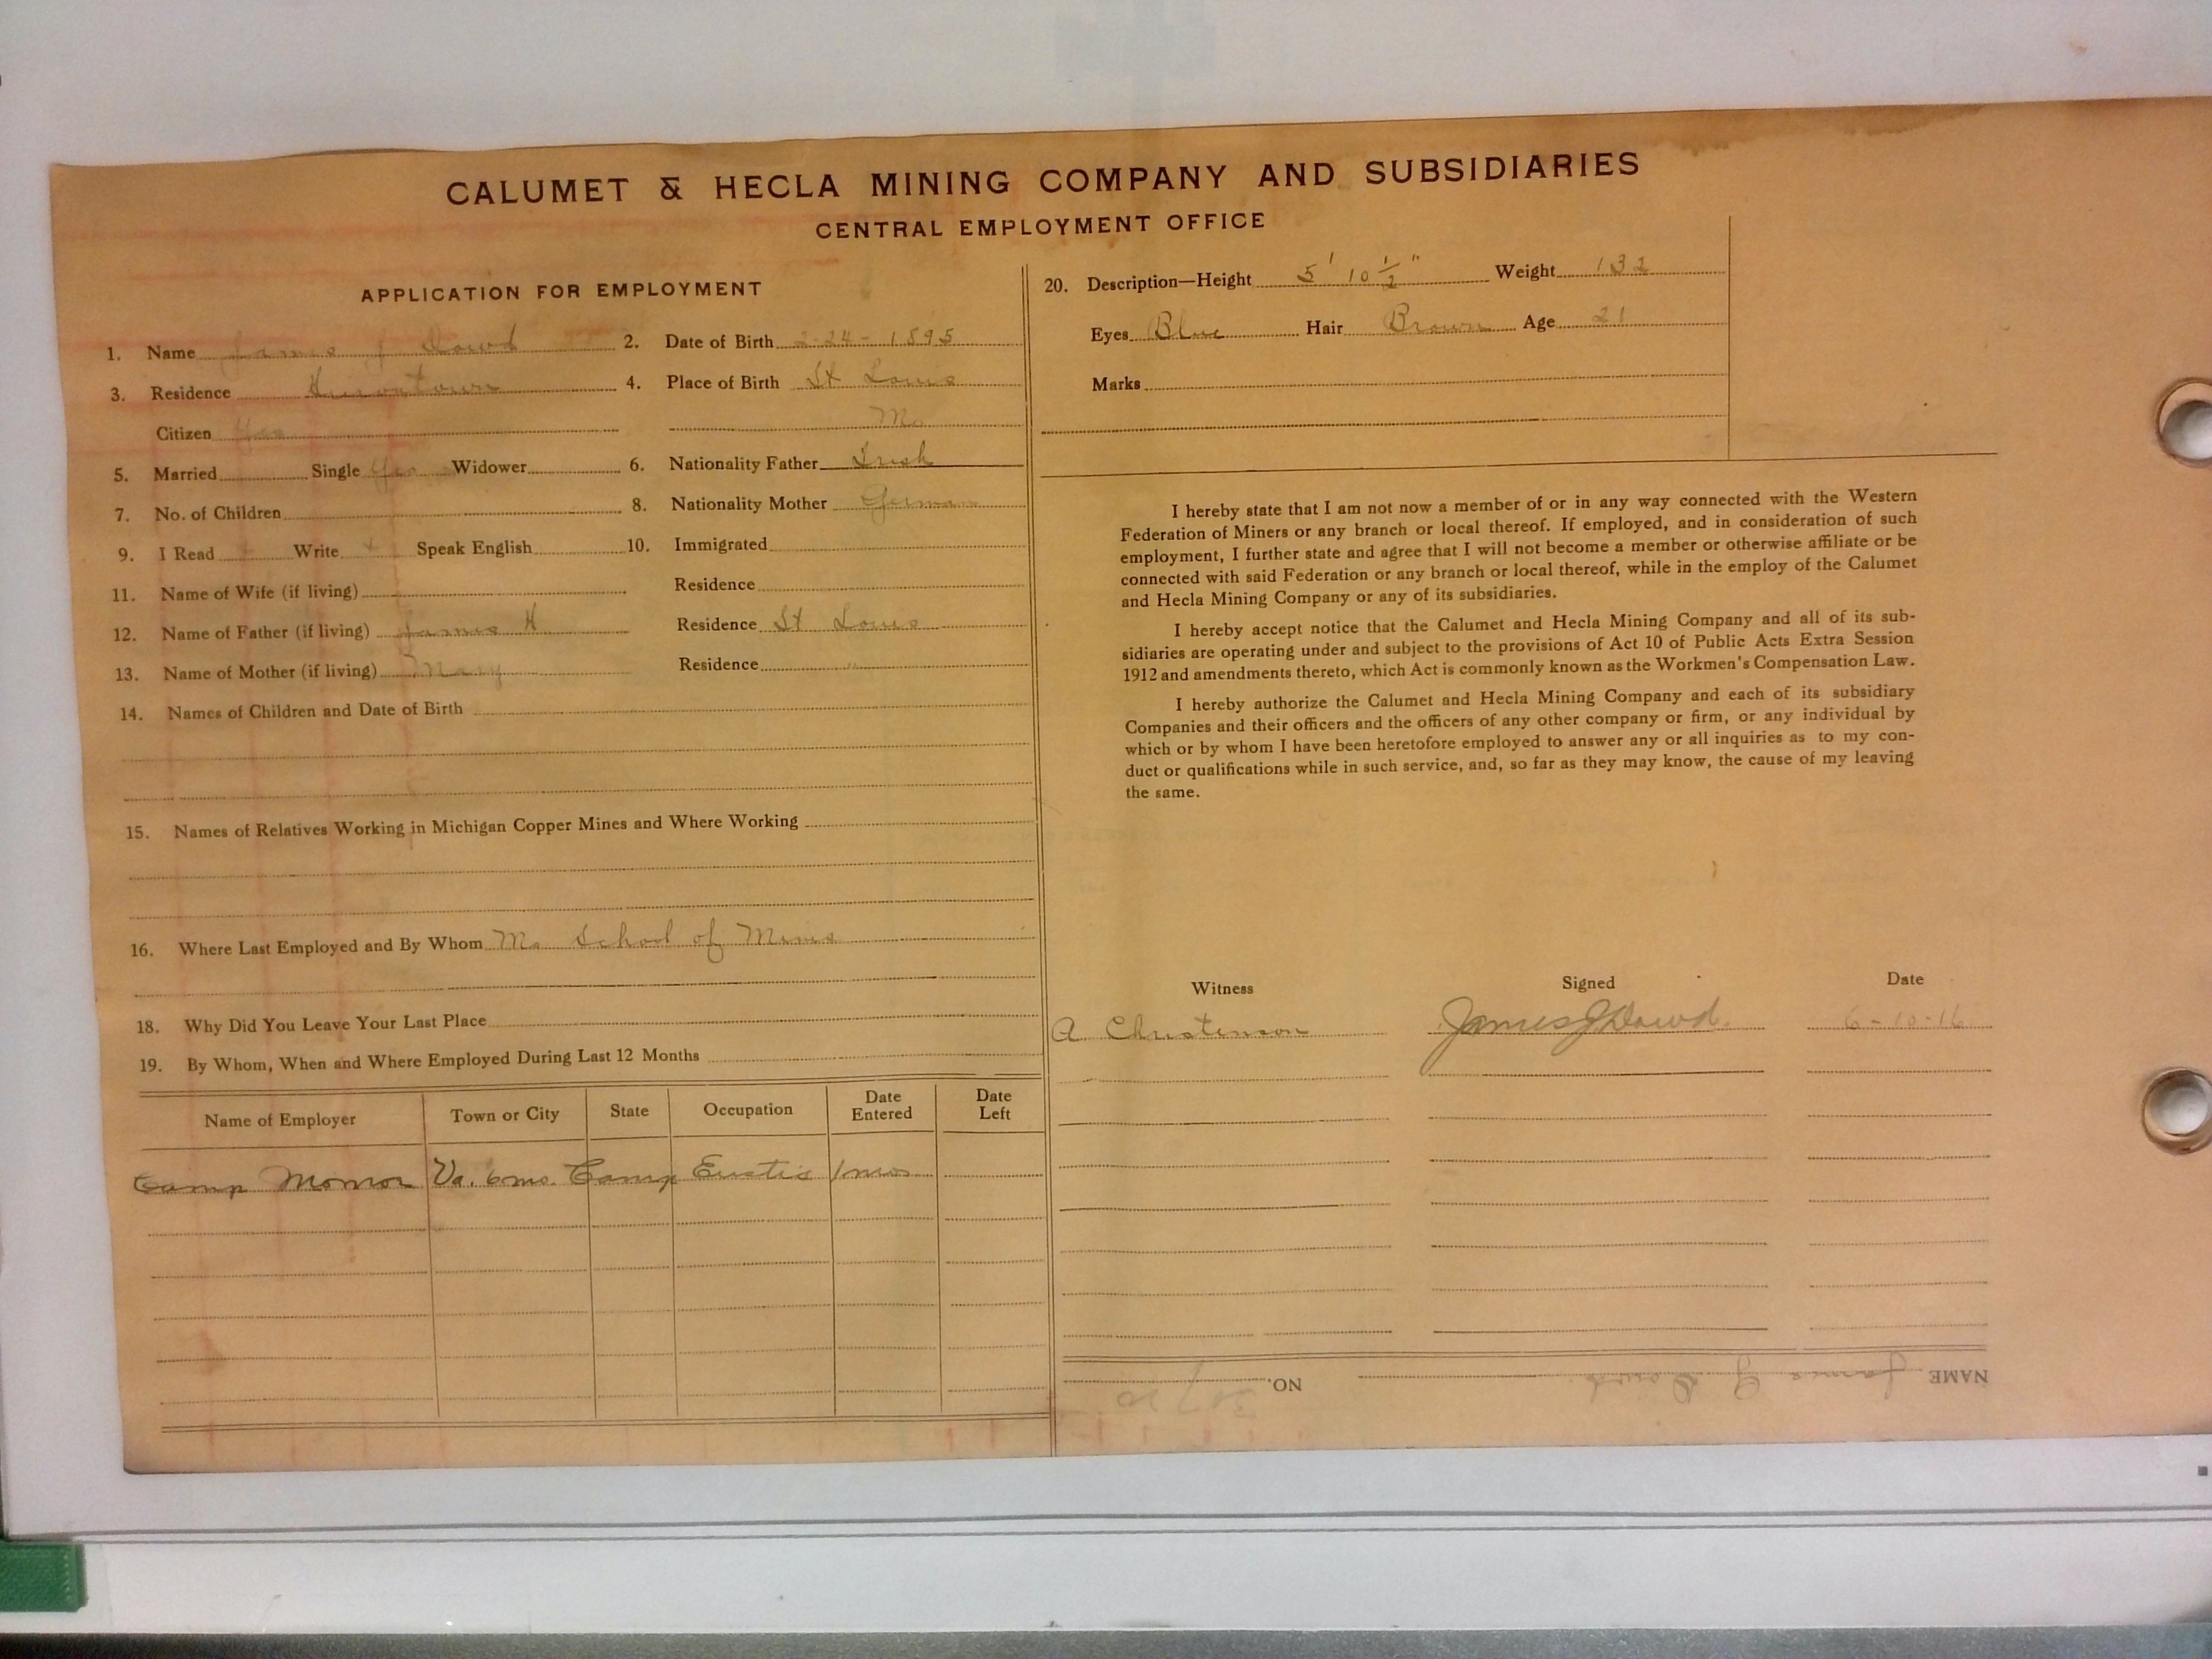 CALUMET & HECLA MINING COMPANY AND SUBSIDIARIES
CENTRAL EMPLOYMENT OFFICE
APPLICATION FOR EMPLOYMENT
1. Name James J Dowd 2. Date of Birth 2-24-1895
3. Residence Hurontown 4. Place of Birth St Louis
Citizen Yes Mo
5. Married Single Yes Widower 6. Nationality Father Irish
7. No. of Children 8. Nationality Mother German
9. I Read Write Speak English 10. Immigrated
11. Name of Wife (if living) Residence
12. Name of Father (if living) James H Residence St Louis
13. Name of Mother (if living) Mary Residence "
14. Names of Children and Date of Birth
15. Names of Relatives Working in Michigan Copper Mines and Where Working
16. Where Last Employed and By Whom Mo School of Mines
18. Why Did You Leave Your Last Place
19. By Whom, When and Where Employed During Last 12 Months
Name of Employer Town or City State Occupation Date Entered Date Left
Camp Va. 6 mo. Camp Eustis 1 mos
20. Description—Height 5' 10 1/2" Weight 132
Eyes Blue Hair Brown Age 21
Marks
I hereby state that I am not now a member of or in any way connected with the Western
Federation of Miners or any branch or local thereof. If employed, and in consideration of such
employment, I further state and agree that I will not become a member or otherwise affiliate or be
connected with said Federation or any branch or local thereof, while in the employ of the Calumet
and Hecla Mining Company or any of its subsidiaries.
I hereby accept notice that the Calumet and Hecla Mining Company and all of its sub-
sidiaries are operating under and subject to the provisions of Act 10 of Public Acts Extra Session
1912 and amendments thereto, which Act is commonly known as the Workmen's Compensation Law.
I hereby authorize the Calumet and Hecla Mining Company and each of its subsidiary
Companies and their officers and the officers of any other company or firm, or any individual by
which or by whom I have been heretofore employed to answer any or all inquiries as to my con-
duct or qualifications while in such service, and, so far as they may know, the cause of my leaving
the same.
Witness Signed Date
A Christenson James J Dowd. 6-10-16
NAME James J Dowd. NO.